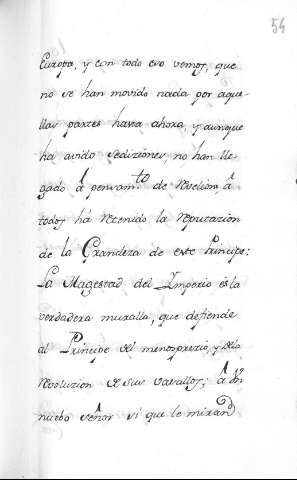 54
Europa, y con todo eso vemos, que
no se han movido nada por aque-
llas partes hasta ahora, y aunque
ha avido sediziones, no han lle-
gado â pensam.to de Revelion, â
todos hâ Retenido la Reputazion
de la Grandeza de este Principe:
La Magestad del Imperio es la
verdadera muralla, que defiende
al Principe del menosprezio, y de la
Revoluzion de sus vasallos; â Un
nuebo señor si que le mirarâ